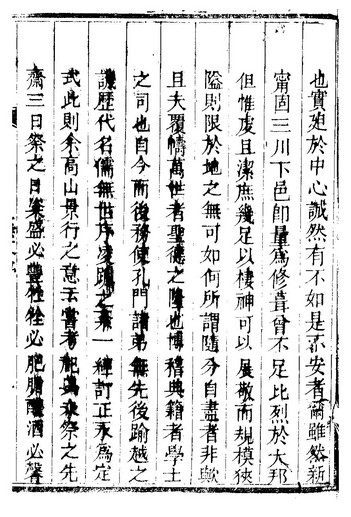 也實廹於中心誠然有不如是不安者爾雖然新
甯固三川下邑卽量爲修葺曾不足比烈於大邦
但惟虔且潔庶幾足以棲神可以展敬而規模狹
隘則限於地之無可如何所謂隨分自盡者非歟
且夫覆幬萬世者聖德之隆也博稽典籍者學士
之司也自今而後務使孔門諸弟無先後踰越之
譏歷代名儒無世序凌躐之乖一經訂正永爲定
式此則叅高山景行之意云爾者祭之先
齋三日祭之日粢盛必豐牲牷必肥腯醴酒必馨